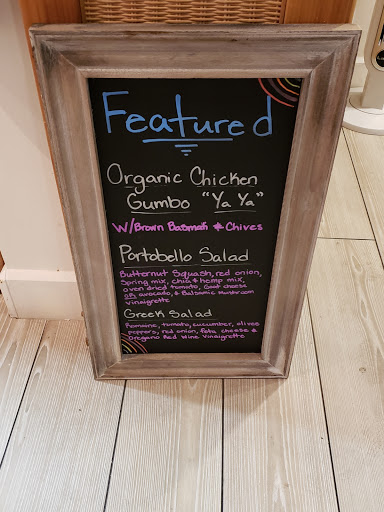 Featured
Organic Chicken
Gumbo "Ya Ya"
W/Brown Basmati & Chives
Portobello Salad
Butternut Squash, red onion,
Spring mix, chia & hemp mix,
oven dried tomato, Goat cheese
OR avocado, & Balsamic mushroom
vinaigrette
Greek Salad
Romaine, tomato, cucumber, olives
peppers, red onion, feta cheese &
oregano Red Wine Vinaigrette